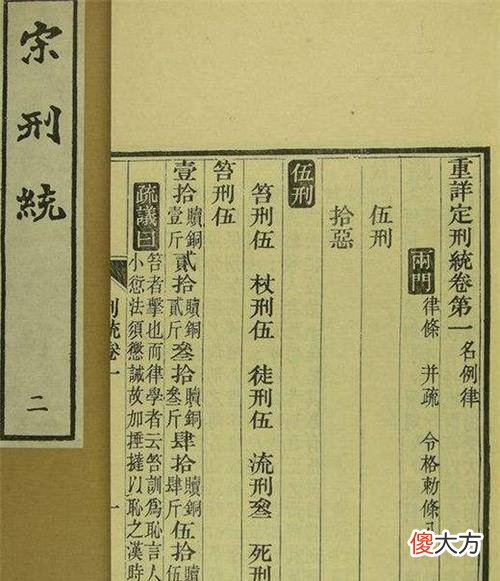 宋刑統
二
重詳定刑統卷第一 名例律
兩門 律條 并疏 令格勅條
伍刑
拾惡
伍刑
笞刑伍 杖刑伍 徒刑伍 流刑叄 死刑
笞刑伍
壹拾 贖銅壹斤 貳拾 贖銅貳斤 叄拾 贖銅叄斤 肆拾 贖銅肆斤 伍拾 贖銅伍
疏議曰 笞者擊也而律學者云笞訓爲恥言人
小愆法須懲誡故加捶撻以恥之漢時
刑統卷一 一
傻大方